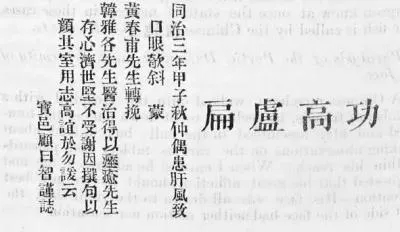 功高盧扁
同治三年甲子秋仲偶患肝風致
口眼欹斜 蒙
黃春甫先生轉挽
韓雅各先生醫治得以瘉先生
存心濟世堅不受謝因撰句以
顏其室用志高誼於勿諼云
寶邑顧曰智謹誌